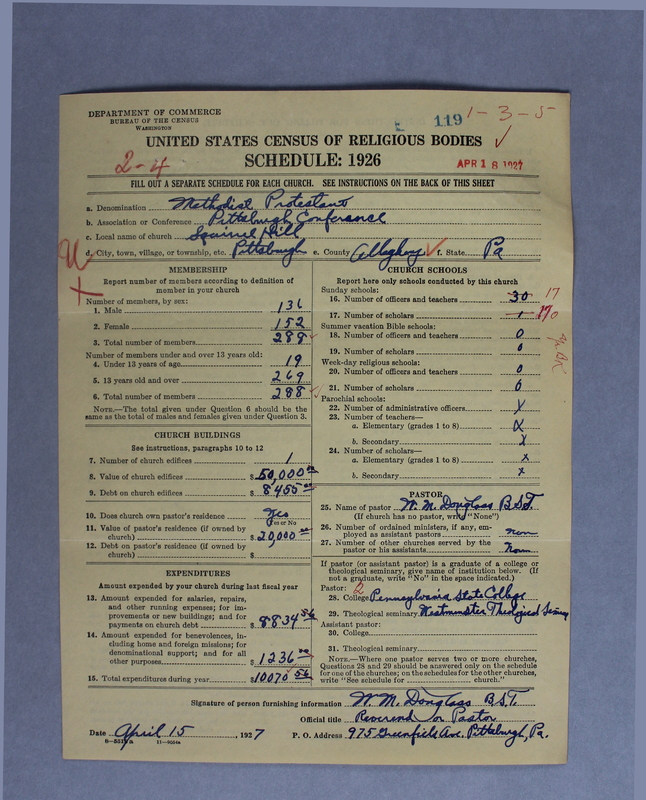 DEPARTMENT OF COMMERCE
BUREAU OF THE CENSUS
WASHINGTON
119
1-3-5
UNITED STATES CENSUS OF RELIGIOUS BODIES
SCHEDULE: 1926
2-4
APR 18 1927
FILL OUT A SEPARATE SCHEDULE FOR EACH CHURCH. SEE INSTRUCTIONS ON THE BACK OF THIS SHEET
a. Denomination Methodist Protestant
b. Association or Conference Pittsburgh Conference
c. Local name of church Squirrel Hill
d. City, town, village, or township, etc. Pittsburgh e. County Allegheny f. State Pa
MEMBERSHIP
Report number of members according to definition of member in your church
Number of members, by sex:
1. Male 136
2. Female 152
3. Total number of members 288
Number of members under and over 13 years old:
4. Under 13 years of age 19
5. 13 years old and over 269
6. Total number of members 288
NOTE.—The total given under Question 6 should be the
same as the total of males and females given under Question 3.
CHURCH BUILDINGS
See instructions, paragraphs 10 to 12
7. Number of church edifices 1
8. Value of church edifices $50,000 00
9. Debt on church edifices $ 8455 00
10. Does church own pastor's residence? Yes
Yes or No
11. Value of pastor's residence (if owned by
church) $20,000 00
12. Debt on pastor's residence (if owned by
church) $
EXPENDITURES
Amount expended by your church during last fiscal year
13. Amount expended for salaries, repairs,
and other running expenses; for im-
provements or new building; and for
payments on church debt $ 8834 56
14. Amount expended for benevolences, in-
cluding home and foreign missions; for
denominational support; and for all
other purposes $ 1236 00
15. Total expenditures during year $10070 56
CHURCH SCHOOLS
Report here only schools conducted by this church
Sunday schools:
16. Number of officers and teachers 30 17
17. Number of scholars 1 170
Summer vacation Bible schools:
18. Number of officers and teachers 0
19. Number of scholars 0
Week-day religious schools:
20. Number of officers and teachers 0
21. Number of scholars 0
Parochial schools:
22. Number of administrative officers x
23. Number of teachers—
a. Elementary (grades 1 to 8) x
b. Secondary x
24. Number of scholars—
a. Elementary (grades 1 to 8) x
b. Secondary x
PASTOR
25. Name of pastor W. M. Douglass B.S.T.
(If church has no pastor, write "None")
26. Number of ordained ministers, if any, em-
ployed as assistant pastors None
27. Number of other churches served by the
pastor or his assistants None
If pastor (or assistant pastor) is a graduate of a college or
theological seminary, give name of institution below. (If
not a graduate, write "No" in the space indicated.)
Pastor: 2
28. College Pennsylvania State College
29. Theological seminary Westminster Theological Seminary
Assistant pastor:
30. College
31. Theological seminary
NOTE.—Where one pastor serves two or more churches,
Questions 28 and 29 should be answered only on the schedule
for one of the churches; on the schedules for the other churches,
write "See schedule for church."
Signature of person furnishing information W. M. Douglass B.S.T.
Official title Reverend or Pastor
Date April 15, 1927 P. O. Address 975 Greenfield Ave. Pittsburgh, Pa.